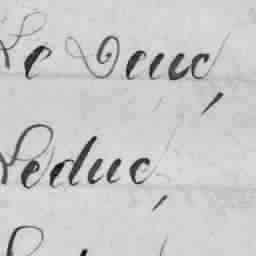 Le Deuc,
Leduc,